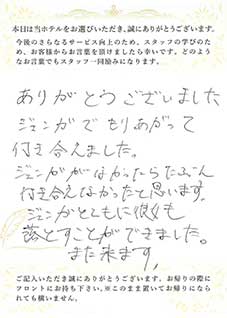 本日は当ホテルをお選びいただき、誠にありがとうございます。
今後のさらなるサービス向上のため、スタッフの学びのため、お客様からお言葉を頂けましたら幸いです。どのようなお言葉でもスタッフ一同励みになります。
ありがとうございました
ジェンガでもりあがって
付き合えました。
ジェンガがなかったらたぶん
付き合えなかったと思います。
ジェンガとともに彼も
落とすことができました。
また来ます。
ご記入いただき誠にありがとうございます。お帰りの際に
フロントにお持ち下さい。※このまま置いてお帰りになら
れても構いません。